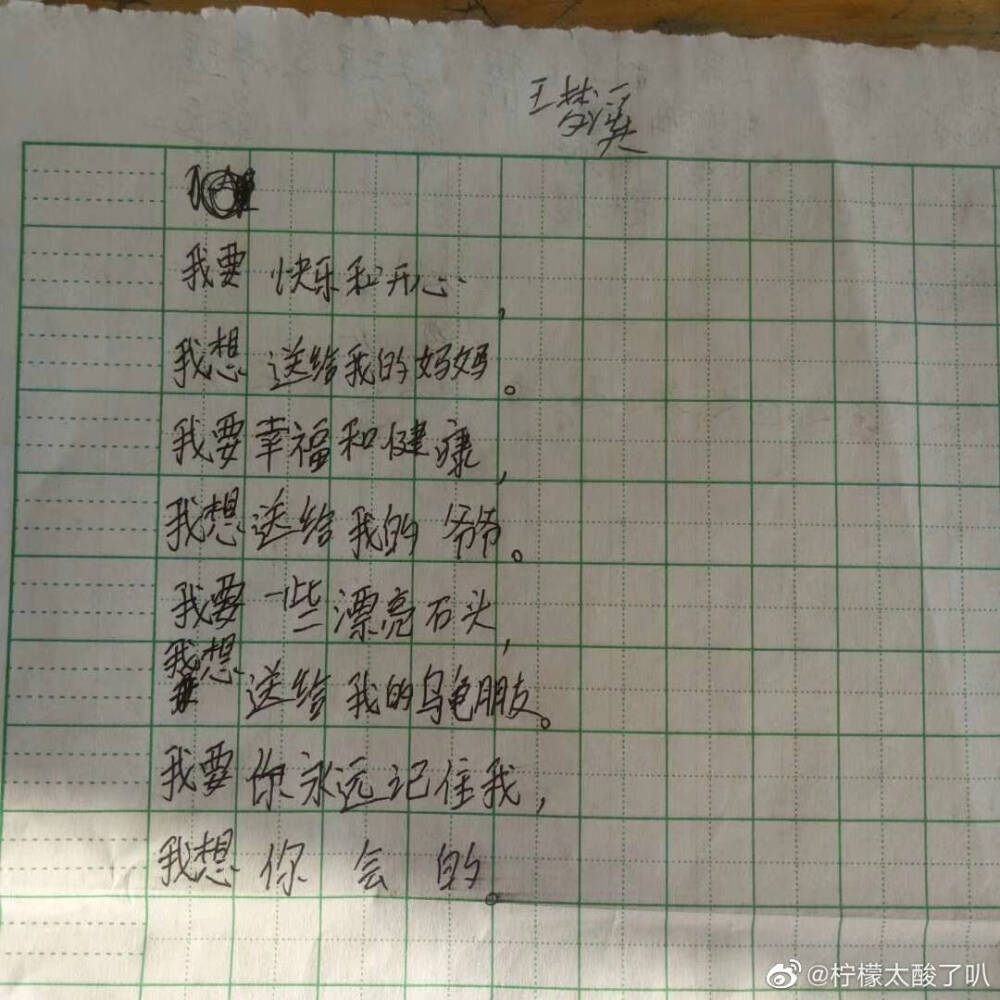 王梦溪
我要快乐和开心,
我想送给我的妈妈。
我要幸福和健康,
我想送给我的爷爷。
我要一些漂亮石头,
我想
送给我的乌龟朋友。
我要你永远记住我,
我想你会的。
@柠檬太酸了叭